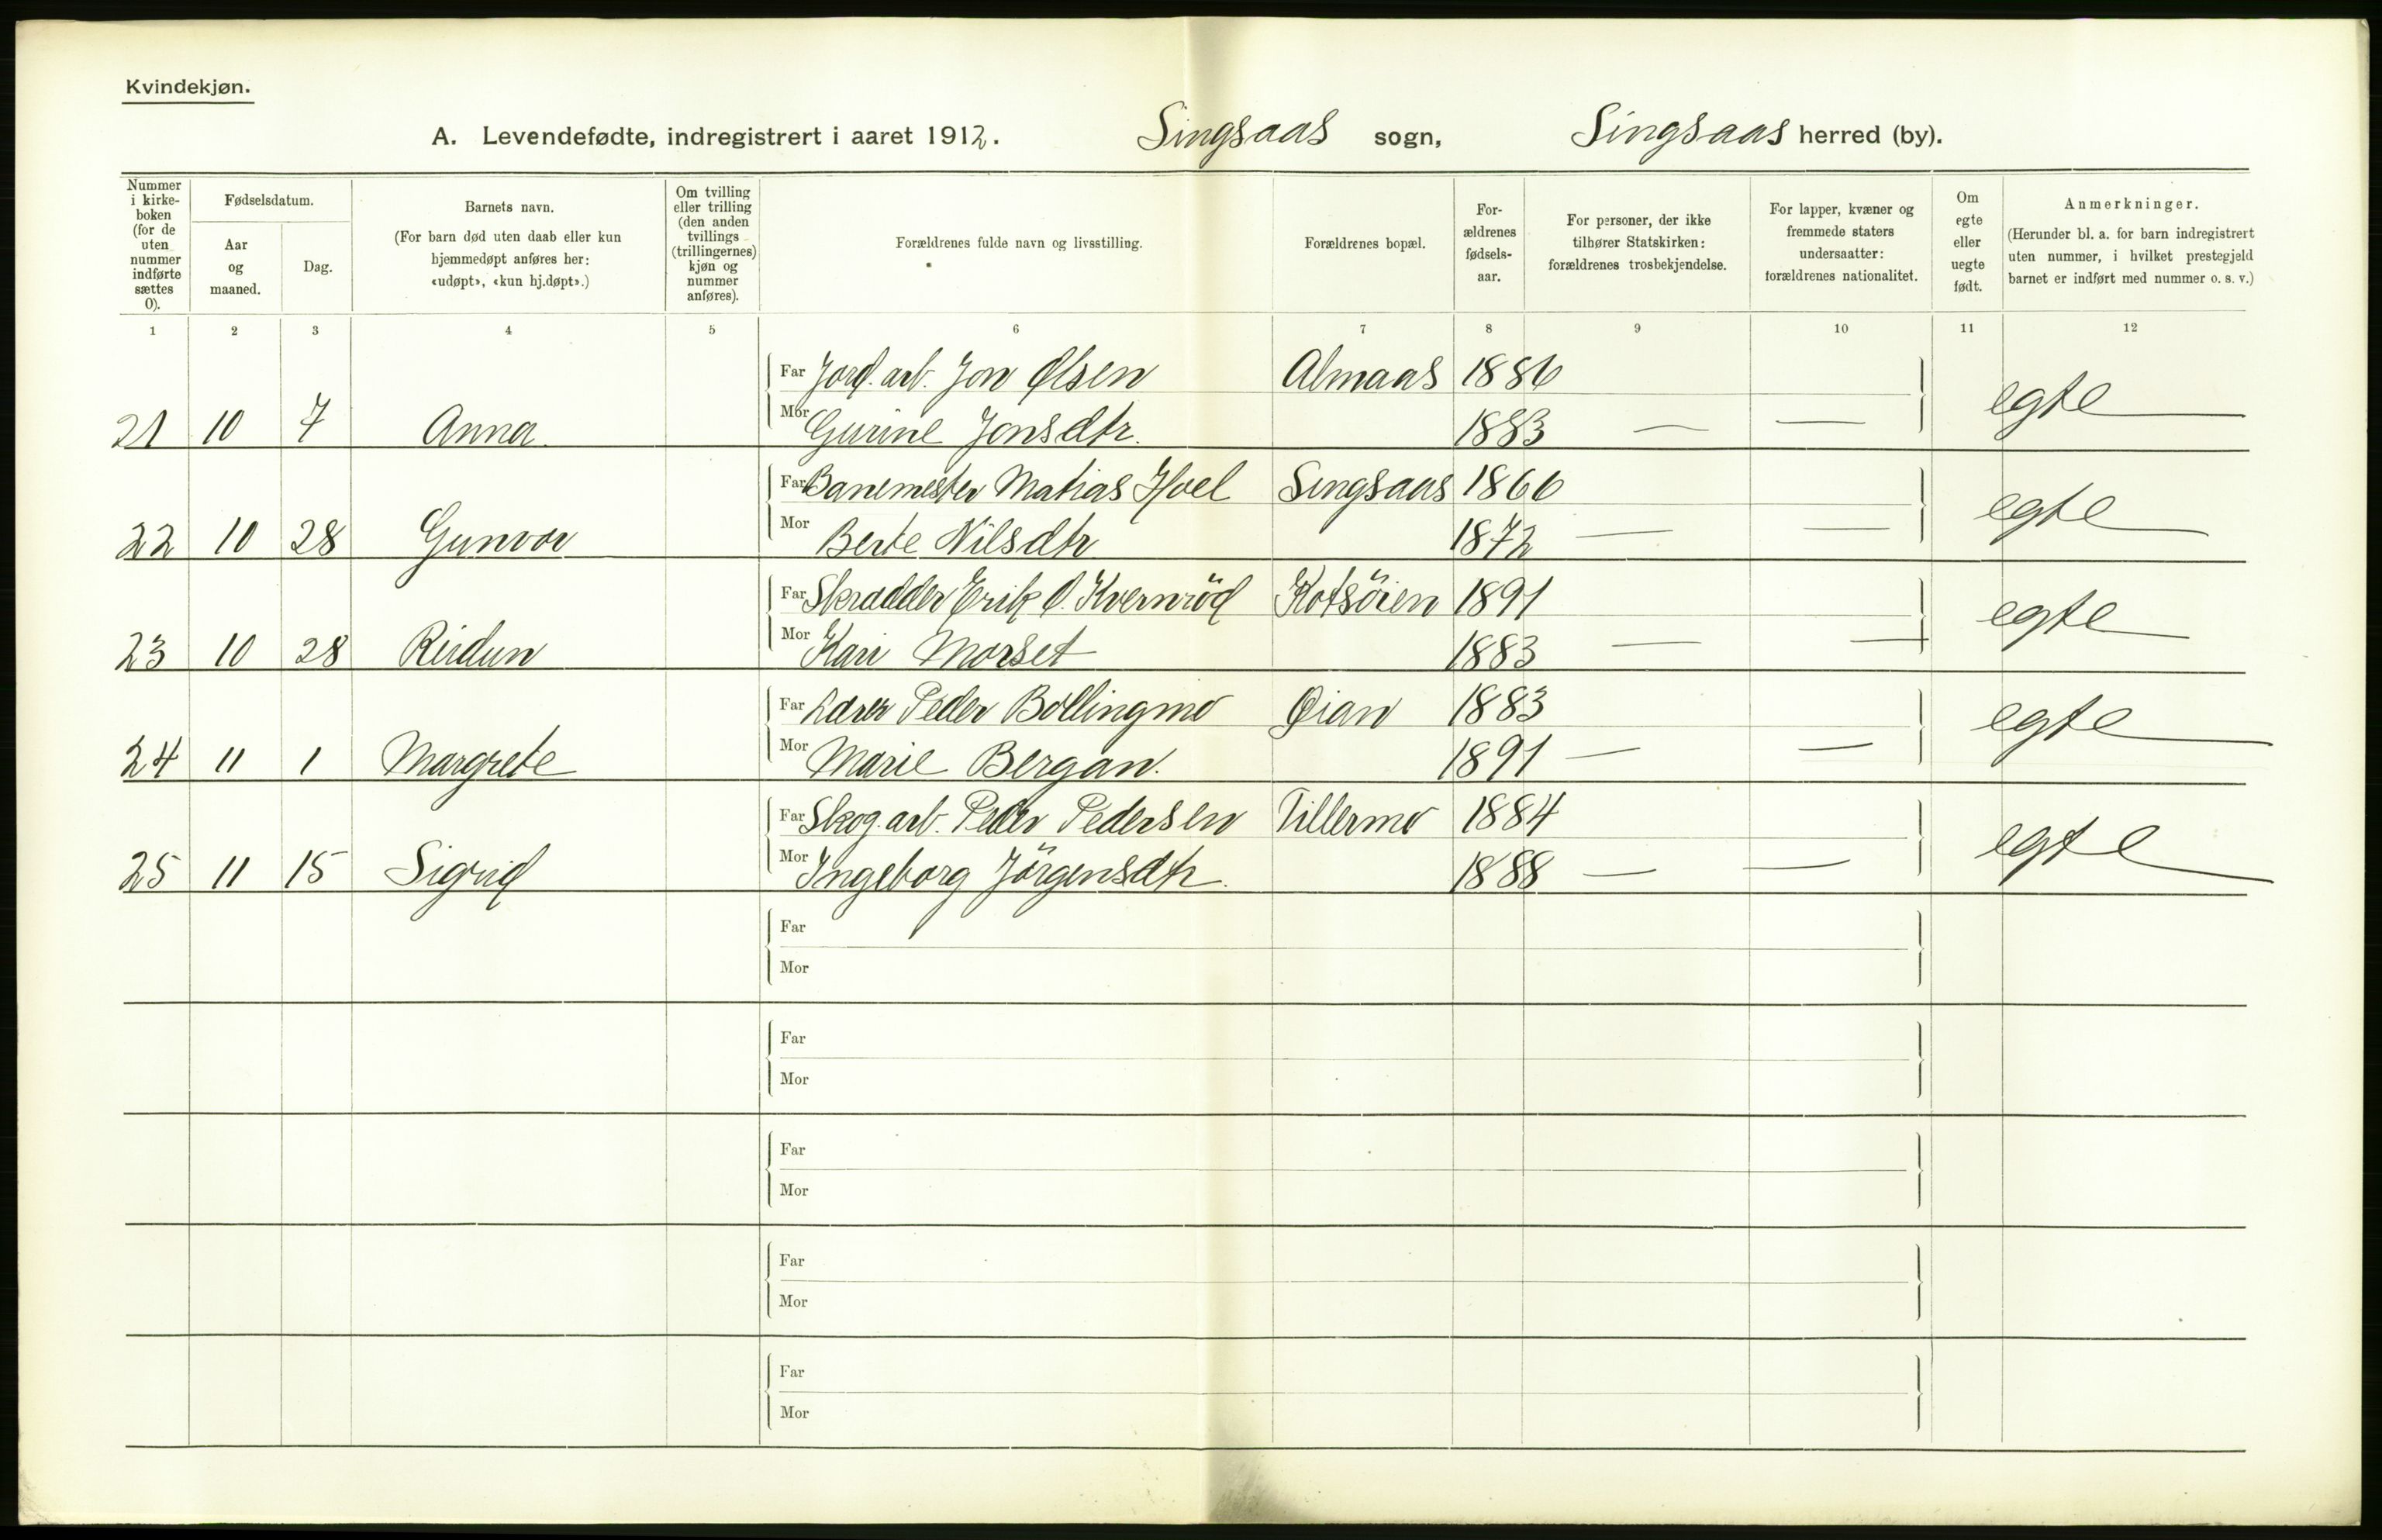 Kvindekjøn.
A. Levendefødte, indregistrert i aaret 1912. Singsaas sogn, Singsaas herred (by).
Nummer i kirke-boken (for de uten nummer indførte sættes 0).
Fødselsdatum.
Aar og maaned.
Dag.
Barnets navn.
(For barn død uten daab eller kun hjemmedøpt anføres her: «udøpt», «kun hj.døpt».)
Om tvilling eller trilling (den anden tvillings (trillingernes) kjøn og nummer anføres).
Forældrenes fulde navn og livsstilling.
Forældrenes bopæl.
For-ældrenes fødsels-aar.
For personer, der ikke tilhører Statskirken: forældrenes trosbekjendelse.
For lapper, kvæner og fremmede staters undersaatter: forældrenes nationalitet.
Om egte eller uegte født.
Anmerkninger.
(Herunder bl. a. for barn indregistrert uten nummer, i hvilket prestegjeld barnet er indført med nummer o. s. v.)
1 2 3 4 5 6 7 8 9 10 11 12
Far Jord. arb. Jon Olsen Almaas 1886
21 10 7 Anna. Mor Gurine Jonsdtr. 1883 — — egte
Far Banemester Matias Hoel Singsaas 1866
22 10 28 Gunvor Mor Berte Nilsdtr 1872 — — egte
Far Skradder Erik O. Kvernröd Kotsöien 1891
23 10 28 Reidun Mor Kari Morset 1883 — — egte
Far Lærer Peder Bollingmo Øian 1883
24 11 1 Margrete Mor Marie Bergan. 1891 — — egte
Far Skog. arb. Peder Pedersen Tillermo 1884
25 11 15 Sigrid Mor Ingeborg Jörgensdtr. 1888 — — egte
Far
Mor
Far
Mor
Far
Mor
Far
Mor
Far
Mor